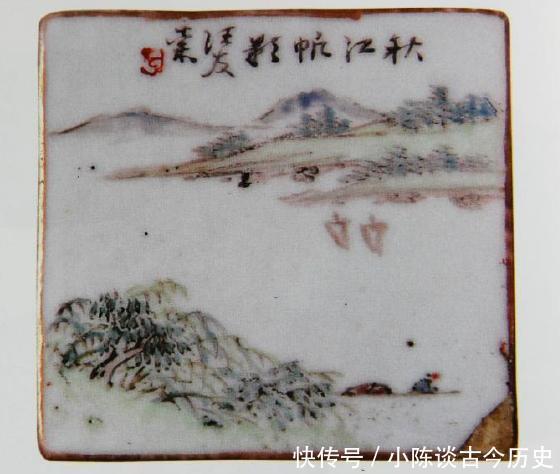 秋江帆影汪友棠
快传号／小陈谈古今历史